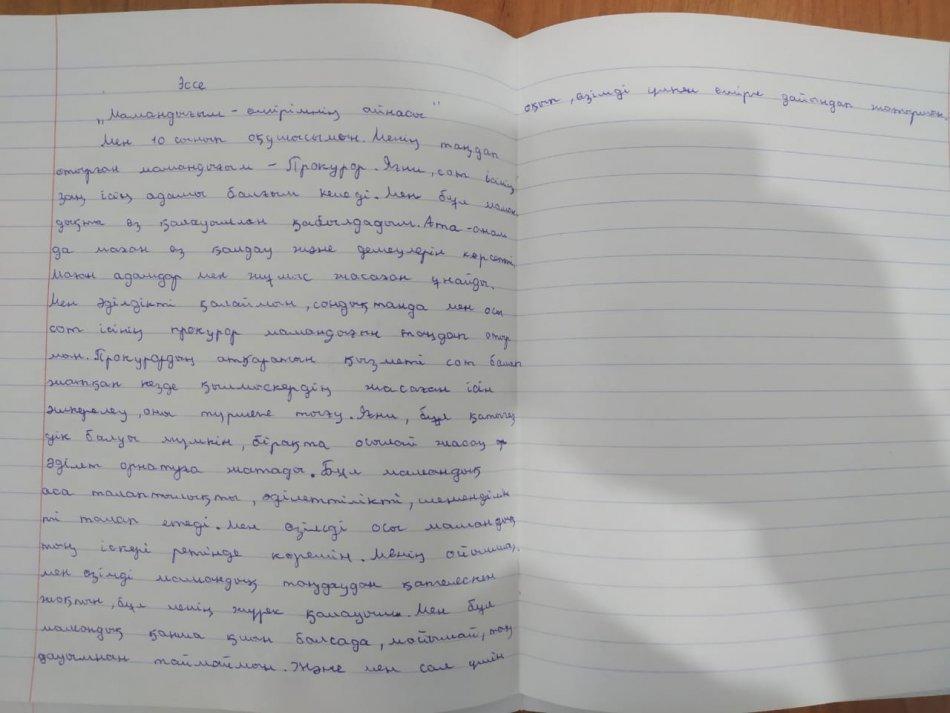 Эссе
„Мамандығым - өмірімнің айнасы"
Мен 10 сынып оқушысымын. Менің таңдап
отырған мамандығым - Прокурор. Яғни, сот ісінің
заң ісінің адамы болғым келеді. Мен бұл маман
дықты өз қалауыммен қабылдадым. Ата-анам
да маған өз қолдау және демеулерін көрсетті
Маған адамдар мен жұмыс жасаған ұнайды.
Мен әділдікті қалаймын, сондықтанда мен осы
сот ісінің прокурор мамандығын таңдап отыр
мын. Прокурордың атқаратын қызметі сот болып
жатқан кезде қылмыскердің жасаған ісін
әшкерелеу, оны түрмеге тығу. Яғни, бұл қатыгез
дік болуы мүмкін, бірақта осылай жасау
әділет орнатуға жатады. Бұл мамандық
аса талаптылықты, әділеттілікті, шешенділік
ті талап етеді. Мен өзімді осы мамандық
тың іскері ретінде көремін. Менің ойымша,
мен өзімді мамандық таңдаудан қателескен
жоқпын, бұл менің жүрек қалауым. Мен бұл
мамандық қанша қиын болсада, мойымай, таң
дауымнан таймаймын. Және мен сол үшін
оқып, өзімді үлкен өмірге дайындап жатырмын.